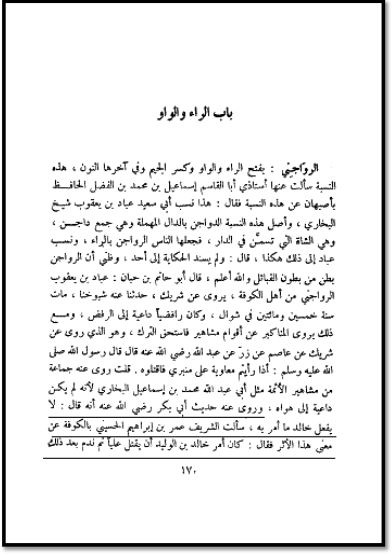 باب الراء والواو
الرواجني : بفتح الراء والواو وكسر الجيم وفي آخرها النون ، هذه
النسبة سألت عنها أستاذي أبا القاسم إسماعيل بن محمد بن الفضل الحافظ
بأصبهان عن هذه النسبة فقال : هذا نسب أبي سعيد عباد بن يعقوب شيخ
البخاري ، وأصل هذه النسبة الدواجن بالدال المهملة وهي جمع داجن ،
وهي الشاة التي تسمّن في الدار ، فجعلها الناس الرواجن بالراء ، ونسب
عباد إلى ذلك هكذا ، قال : ولم يسند الحكاية إلى أحد ، وظني أن الرواجن
بطن من بطون القبائل والله أعلم ، قال أبو حاتم بن حبان : عباد بن يعقوب
الرواجني من أهل الكوفة ، يروي عن شريك ، حدثنا عنه شيوخنا ، مات
سنة خمسين ومائتين في شوال ، وكان رافضياً داعية إلى الرفض ، ومع
ذلك يروي المناكير عن أقوام مشاهير فاستحق الترك ، وهو الذي روى عن
شريك عن عاصم عن زرّ عن عبد الله رضي الله عنه قال قال رسول الله صلى
الله عليه وسلم : أذا رأيتم معاوية على منبري فاقتلوه . قلت روى عنه جماعة
من مشاهير الأئمة مثل أبي عبد الله محمد بن إسماعيل البخاري لأنه لم يكن
داعية إلى هواه ، وروى عنه حديث أبي بكر رضي الله عنه أنه قال : لا
يفعل خالد ما أمر به ، سألت الشريف عمر بن إبراهيم الحسيني بالكوفة عن
معنى هذا الأثر فقال : كان أمر خالد بن الوليد أن يقتل علياً ثم ندم بعد ذلك
١٧٠